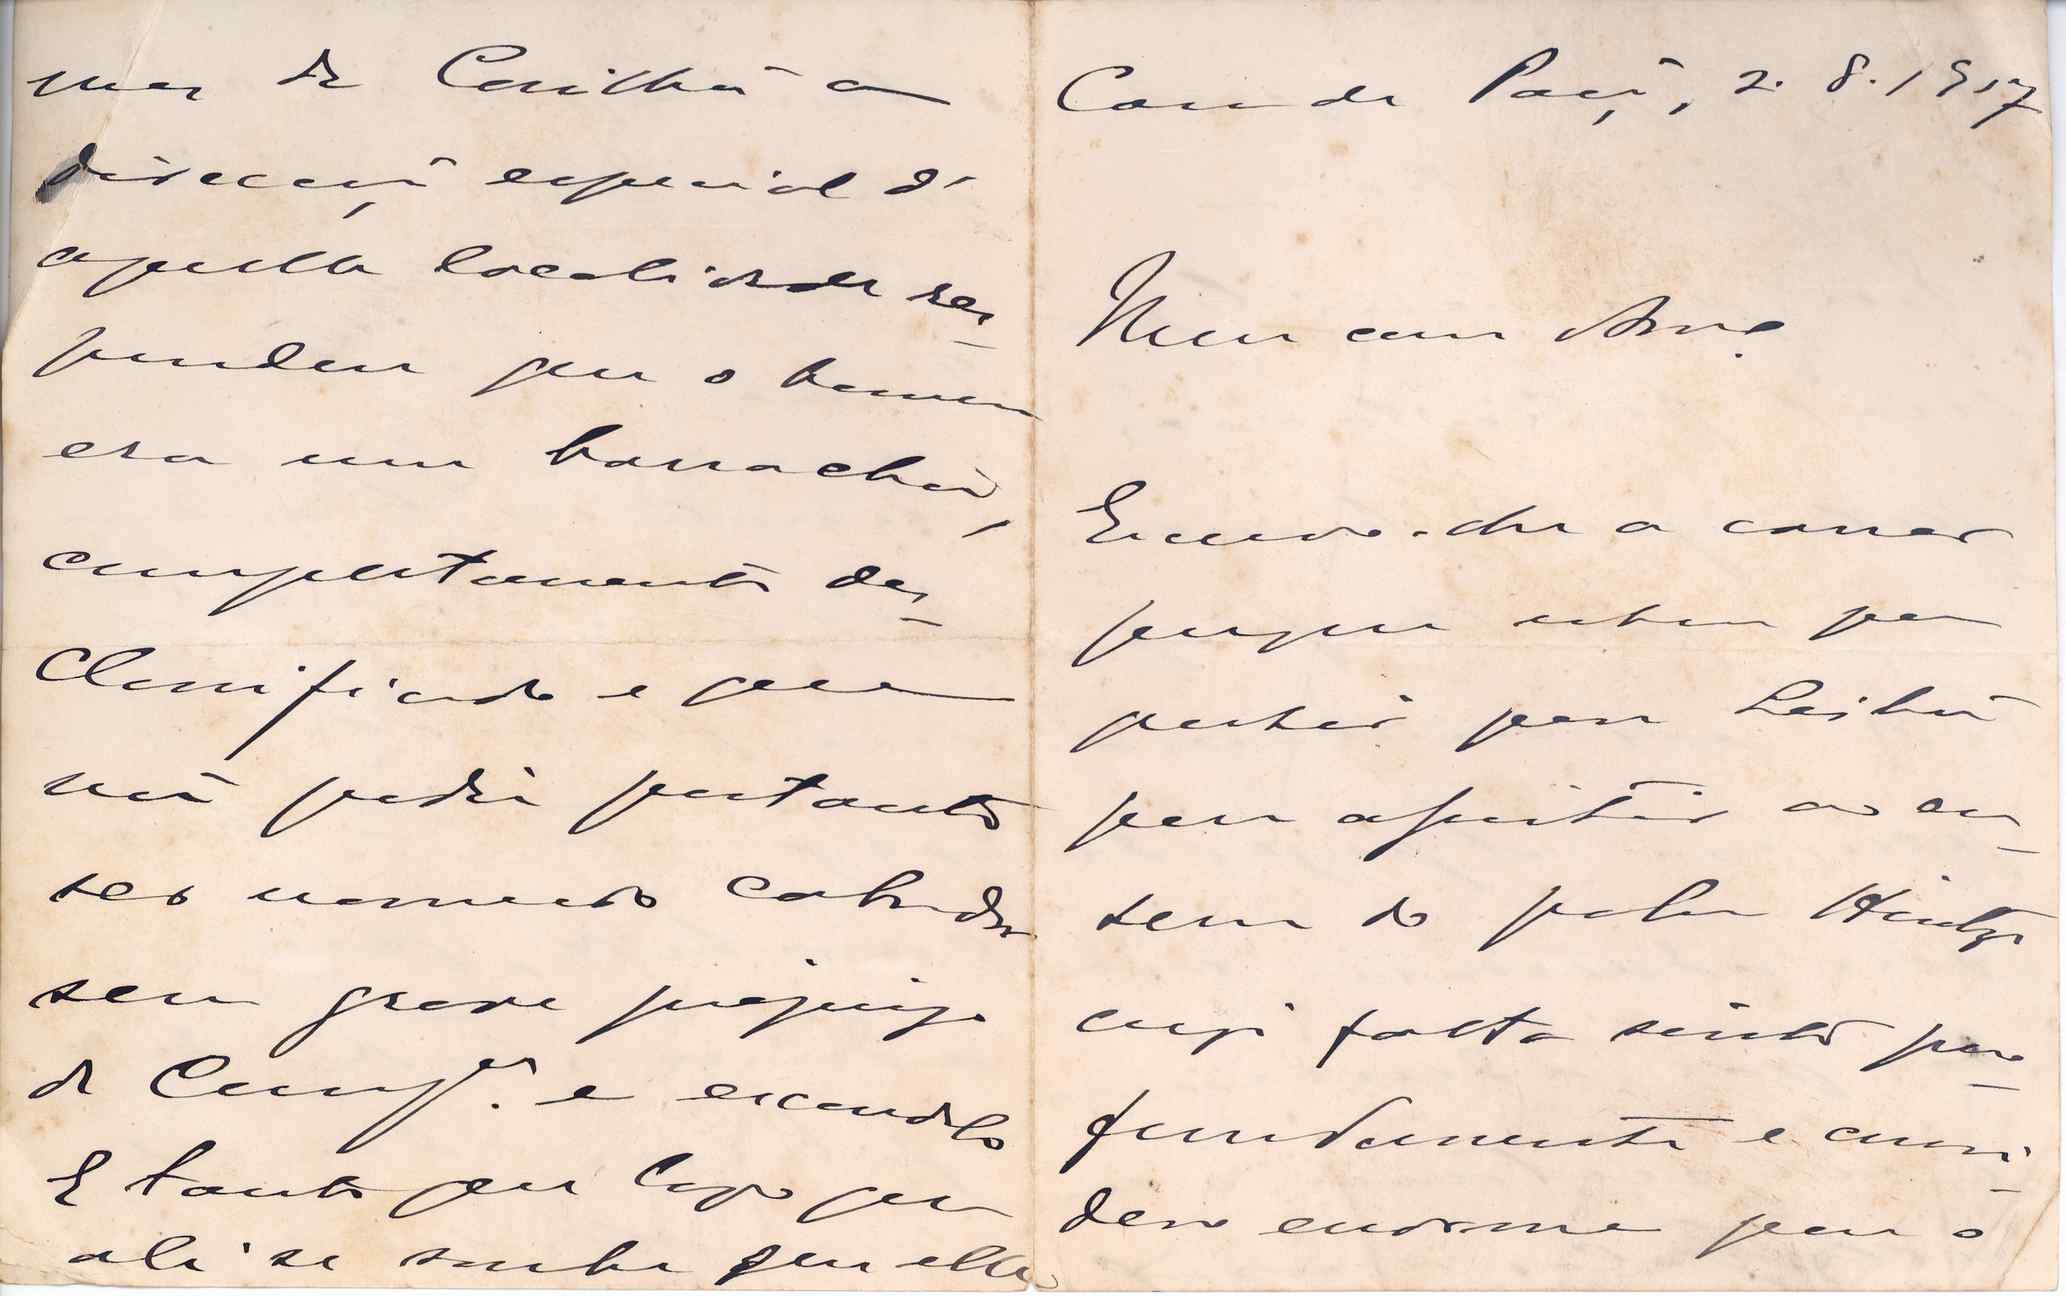 Casa de Paçô, 2.8.1907
Meu caro Amº
Escrevo-lhe a correr
porque estou pa
partir para Lisbôa
para assistir ao en-
terro do pobre Hintze
cuja falta sinto pro-
fundamente e consi-
dero enorme para o
mas da Covilhã a
direcção especial d'
aquella localidade res-
pondeu que o homem
era um borrachão,
completamente des-
classificado e que
não podia portanto
ser nomeado cobrador
sem grave prejuizo
da Compª. e escandalo
E tanto que logo que
ali se soube que elle